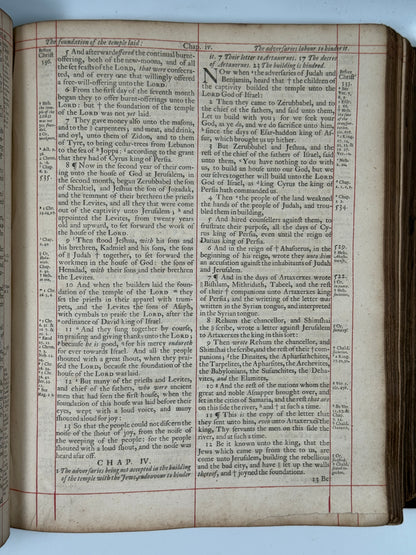 The foundation of the temple laid:
Chap. iv.
The adversaries labour to hinder it.
5 And afterward offered the continual burnt-
offering, both of the new-moons, and of all
the set feasts of the LORD, that were consecra-
ted, and of every one that willingly offered
a free-will-offering unto the LORD.
6 From the first day of the seventh month
began they to offer burnt-offerings unto the
LORD: but the foundation of the temple
of the LORD was not yet laid.
7 They gave money also unto the masons,
and to the carpenters; and meat, and drink,
and oyl, unto them of Zidon, and to them
of Tyre, to bring cedar-trees from Lebanon
to the sea of Joppa: according to the grant
that they had of Cyrus king of Persia.
8 ¶ Now in the second year of their com-
ing unto the house of God at Jerusalem, in
the second month, began Zerubbabel the son
of Shealtiel, and Jeshua the son of Jozadak,
and the remnant of their brethren the priests
and the Levites, and all they that were come
out of the captivity unto Jerusalem; and
appointed the Levites, from twenty years
old and upward, to set forward the work of
the house of the LORD.
9 Then stood Jeshua, with his sons and
his brethren, Kadmiel and his sons, the sons
of Judah together, to set forward the
workmen in the house of God: the sons of
Henadad, with their sons and their brethren
the Levites.
10 And when the builders laid the foun-
dation of the temple of the LORD they
set the priests in their apparel with trum-
pets, and the Levites the sons of Asaph,
with cymbals to praise the LORD, after the
ordinance of David king of Israel.
11 And they sung together by course,
in praising and giving thanks unto the LORD;
because he is good, for his mercy endureth
for ever towards Israel. And all the people
shouted with a great shout, when they prai-
sed the LORD, because the foundation of the
house of the LORD was laid.
12 But many of the priests and Levites,
and chief of the fathers, who were ancient
men that had seen the first house, when the
foundation of this house was laid before their
eyes, wept with a loud voice, and many
shouted aloud for joy:
13 So that the people could not discern the
noise of the shout of joy, from the noise of
the weeping of the people: for the people
shouted with a loud shout, and the noise was
heard afar off.
CHAP. IV.
1 The adversaries being not accepted in the building
of the temple with the Jews, endeavour to hinder
it. 7 Their letter to Artaxerxes. 17 The decree
of Artaxerxes. 23 The building is hindered.
NOw when the adversaries of Judah and
Benjamin, heard that the children of
the captivity builded the temple unto the
LORD God of Israel:
2 Then they came to Zerubbabel, and to
the chief of the fathers, and said unto them,
Let us build with you; for we seek your
God, as ye do, and we do sacrifice unto him,
since the days of Esar-haddon king of As-
sur, which brought us up hither.
3 But Zerubbabel and Jeshua, and the
rest of the chief of the fathers of Israel, said
unto them, You have nothing to do with
us, to build an house unto our God; but we
our selves together will build unto the LORD
God of Israel, as king Cyrus the king of
Persia hath commanded us.
4 Then the people of the land weakned
the hands of the people of Judah, and trou-
bled them in building,
5 And hired counsellers against them, to
frustrate their purpose, all the days of Cy-
rus king of Persia, even until the reign of
Darius king of Persia.
6 And in the reign of Ahasuerus, in the
beginning of his reign, wrote they unto him
an accusation against the inhabitants of Judah
and Jerusalem.
7 ¶ And in the days of Artaxerxes wrote
Bishlam, Mithridath, Tabeel, and the rest
of their companions unto Artaxerxes king
of Persia; and the writing of the letter was
written in the Syrian tongue, and interpreted
in the Syrian tongue.
8 Rehum the chancellor, and Shimshai
the scribe, wrote a letter against Jerusalem
to Artaxerxes the king in this sort:
9 Then wrote Rehum the chancellor, and
Shimshai the scribe, and the rest of their com-
panions; the Dinaites, the Apharsathchites,
the Tarpelites, the Apharsites, the Archevites,
the Babylonians, the Susanchites, the Deha-
vites, and the Elamites,
10 And the rest of the nations whom the
great and noble Asnapper brought over, and
set in the cities of Samaria, and the rest that are
on this side the river, and at such a time.
11 ¶ This is the copy of the letter that
they sent unto him, even unto Artaxerxes the
king, Thy servants the men on this side the
river, and at such a time.
12 Be it known unto the king, that the
Jews which came up from thee to us, are
come unto Jerusalem, building the rebellious
and the bad city, and have set up the walls
thereof, and joyned the foundations.
13 Be